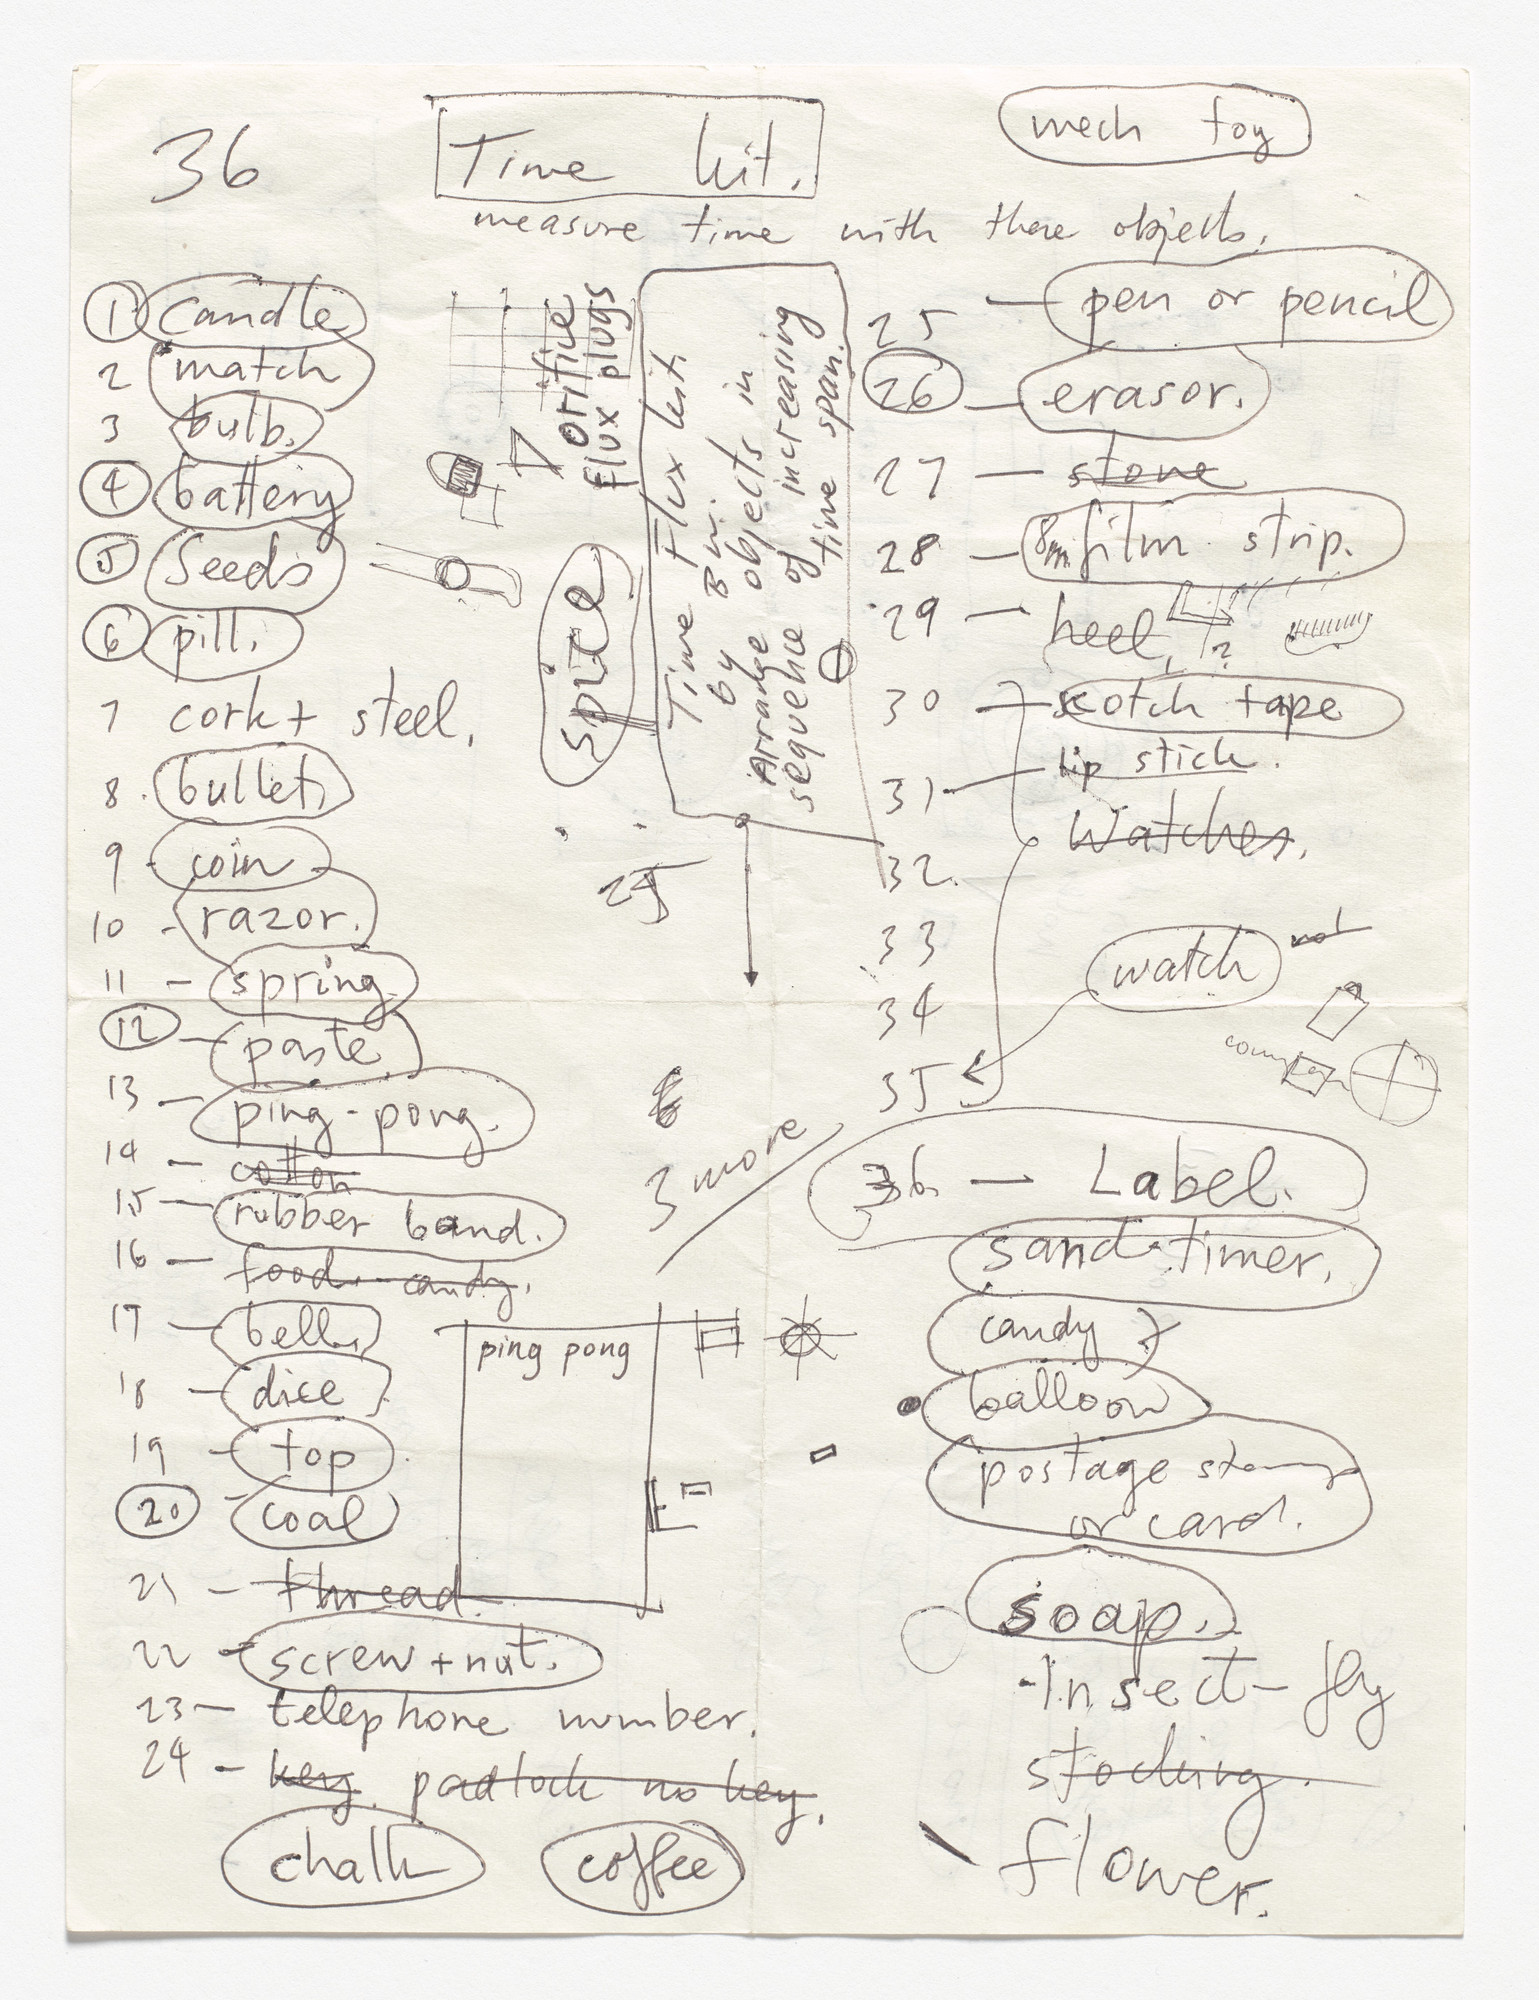 36
Time kit.
mech toy
measure time with these objects.
1 candle
2 match
3 bulb.
4 battery
5 Seeds
6 pill.
7 cork + steel.
8. bullet.
9 - coin
10 - razor.
11 - spring
12 - paste
13 - ping-pong.
14 - cotton
15 - rubber band.
16 - food - candy.
17 - bell.
18 - dice
19 - top
20 - coal
21 - thread.
22 - screw + nut.
23 - telephone number.
24 - key. padlock no key.
chalk
coffee
orifice
flux plugs
spice
Time Flux kit
by B W.
Arrange objects in
sequence of increasing
time span.
25
3 more
ping pong
25 - pen or pencil
26 - erasor.
27 - stone
28 - 8m film strip.
29 - heel, ?
30 - scotch tape
31 - lip stick.
Watches.
32.
33
34
35
watch
not
36 - Label.
sand-timer.
candy
balloon
postage stamp
or card.
soap.
-Insect - fly
stocking.
flower.